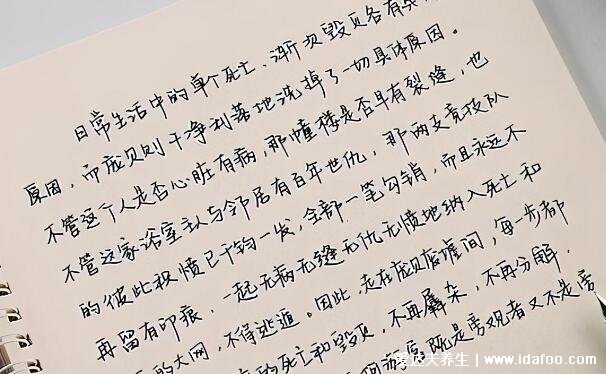 日常生活中的单个死亡、渐次毁灭各有
原因，而庞贝则干净利落地洗掉了一切具体原因。
不管这个人是否心脏有病，那幢楼是否早有裂缝，也
不管这家浴室主人与邻居有百年世仇，那两支竞技队
的彼此积愤已千钧一发，全部一笔勾销，而且永远不
再留有印痕。一起无病无缝无仇无愤地纳入死亡和
的大网，不得逃遁。因此，走在庞贝废墟间，每一步都
的死亡和毁灭，不再羼杂，不再分解，
既是旁观者又不是旁
爱达夫养生 | www.idafoo.com